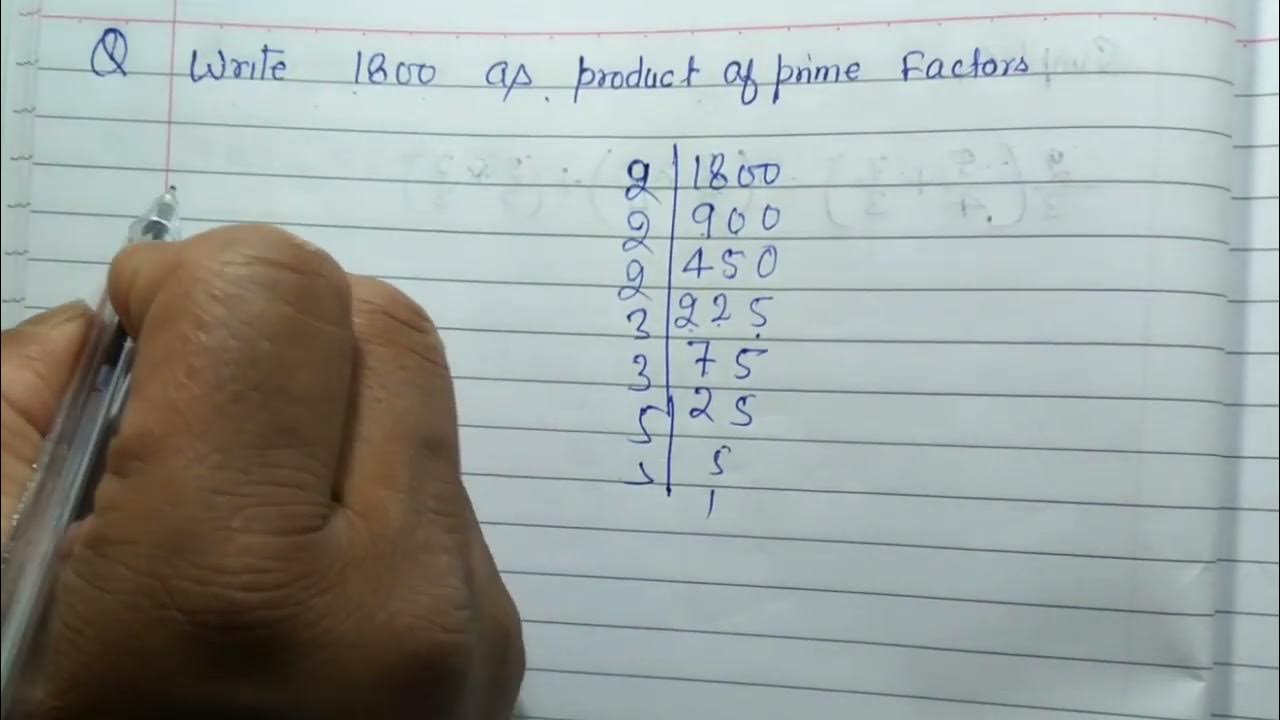 Q Write 1800 as product of prime Factors
2 1800
2 900
2 450
3 225
3 75
5 25
5 5
1